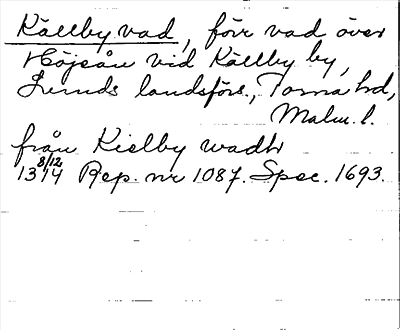 Källby vad, förr vad över
Höjeån vid Källby by,
Lunds landsförs., Torna hd,
Malm. l.
från Kielby wadh
8/12
1314 Rep. nr 1087. Spec. 1693.